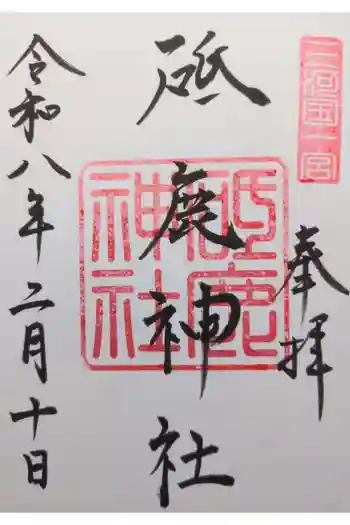 三河国一宮
奉拝
砥鹿神社
砥鹿神社
令和八年二月十日